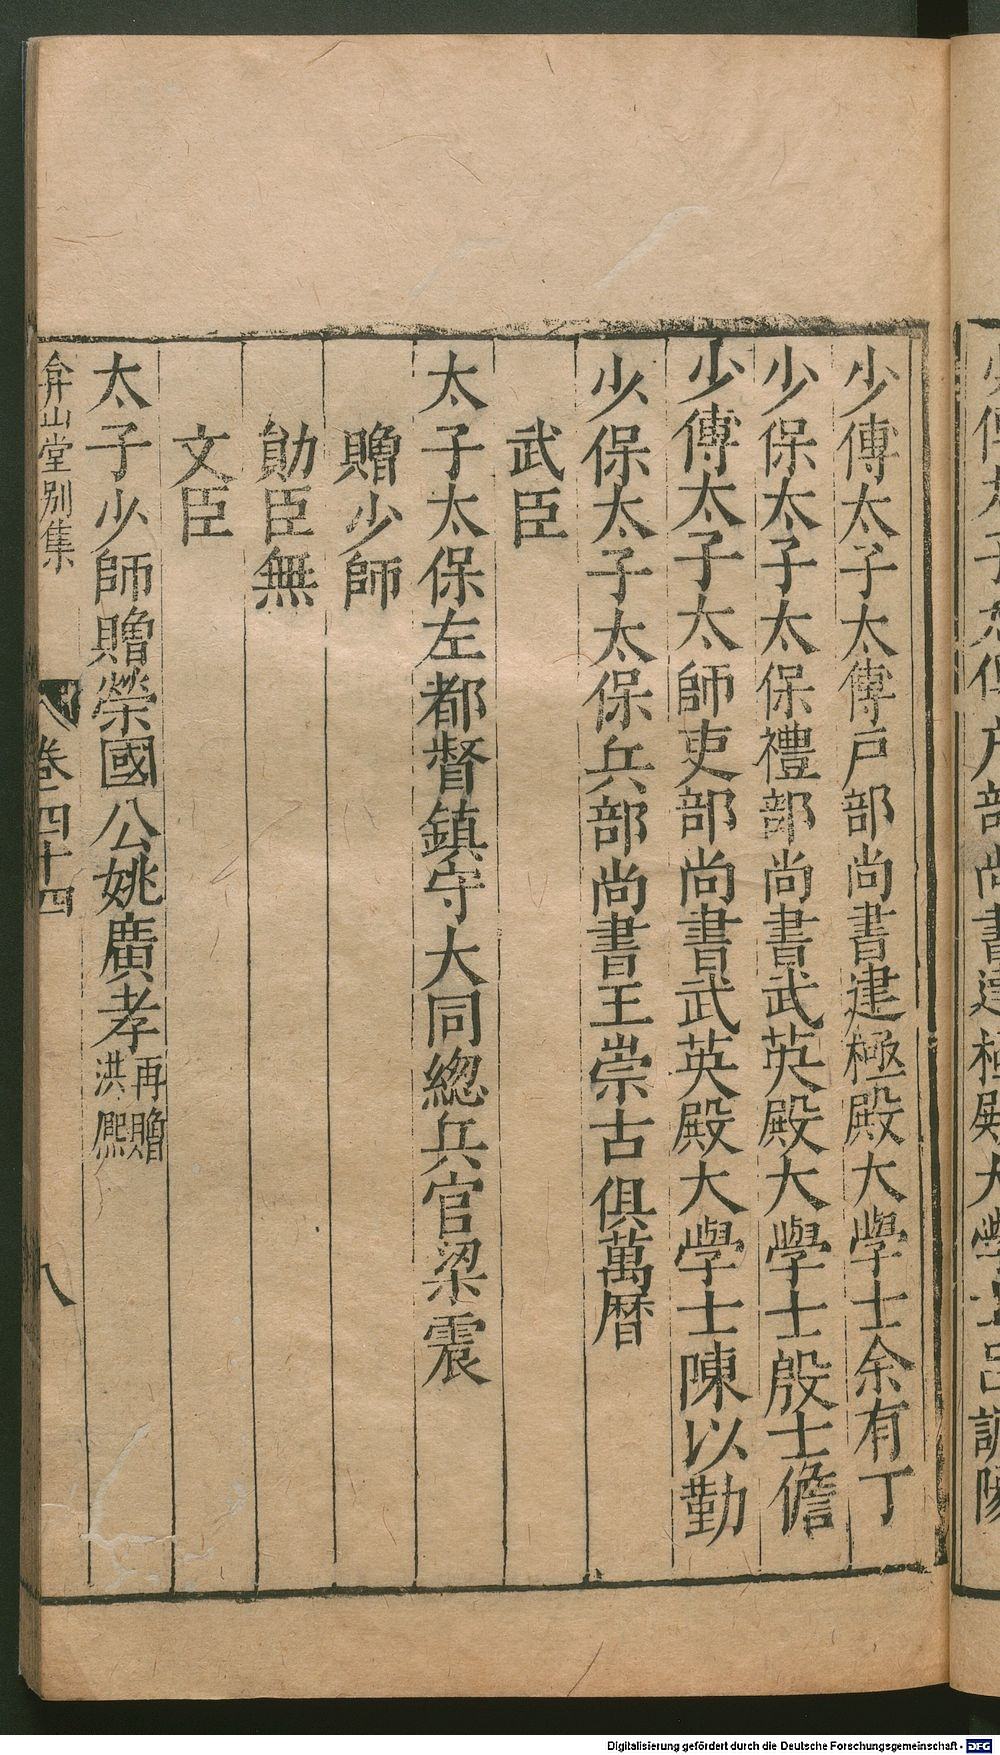 少傅太子太傅戶部尚書建極殿大學士余有丁
少保太子太保禮部尚書武英殿大學士殷士儋
少傅太子太師吏部尚書武英殿大學士陳以勤
少保太子太保兵部尚書王崇古俱萬曆
武臣
太子太保左都督鎮守大同總兵官梁震
贈少師
勛臣無
文臣
太子少師贈榮國公姚廣孝再贈洪熙
弇山堂別集 卷四十四 八
Digitalisierung gefördert durch die Deutsche Forschungsgemeinschaft - DFG